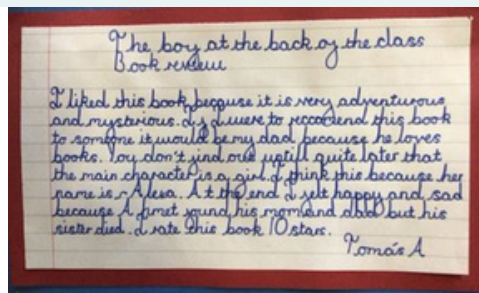 The boy at the back of the class
Book review
I liked this book because it is very adventurous
and mysterious. If I were to reccomend this book
to someone it would be my dad because he loves
books. You don't find out uptill quite later that
the main character is a girl. I think this because her
name is Alexa. At the end I felt happy and sad
because A found his mom and dad but his
sister died. I rate this book 10 stars.
Tomás A